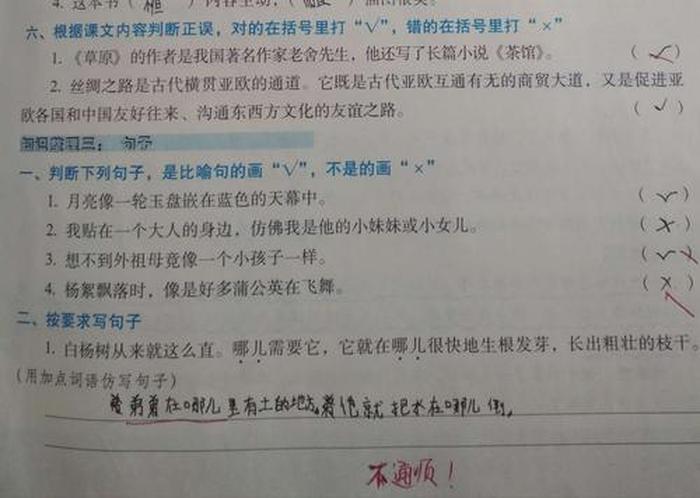 4. 这本书（ ）内容生动，（ ）插图很美。
六、根据课文内容判断正误，对的在括号里打“√”，错的在括号里打“×”
1. 《草原》的作者是我国著名作家老舍先生，他还写了长篇小说《茶馆》。 （ √ ）
2. 丝绸之路是古代横贯亚欧的通道。它既是古代亚欧互通有无的商贸大道，又是促进亚
欧各国和中国友好往来、沟通东西方文化的友谊之路。 （ √ ）
三：句子
一、判断下列句子，是比喻句的画“√”，不是的画“×”
1. 月亮像一轮玉盘嵌在蓝色的天幕中。 （ √ ）
2. 我贴在一个大人的身边，仿佛我是他的小妹妹或小女儿。 （ × ）
3. 想不到外祖母竟像一个小孩子一样。 （ √ ×）
4. 杨絮飘落时，像是好多蒲公英在飞舞。 （ × ）
二、按要求写句子
1. 白杨树从来就这么直。哪儿需要它，它就在哪儿很快地生根发芽，长出粗壮的枝干。
（用加点词语仿写句子）
弟弟在哪儿里有土的地方，他就把水在哪儿倒。
不通顺！